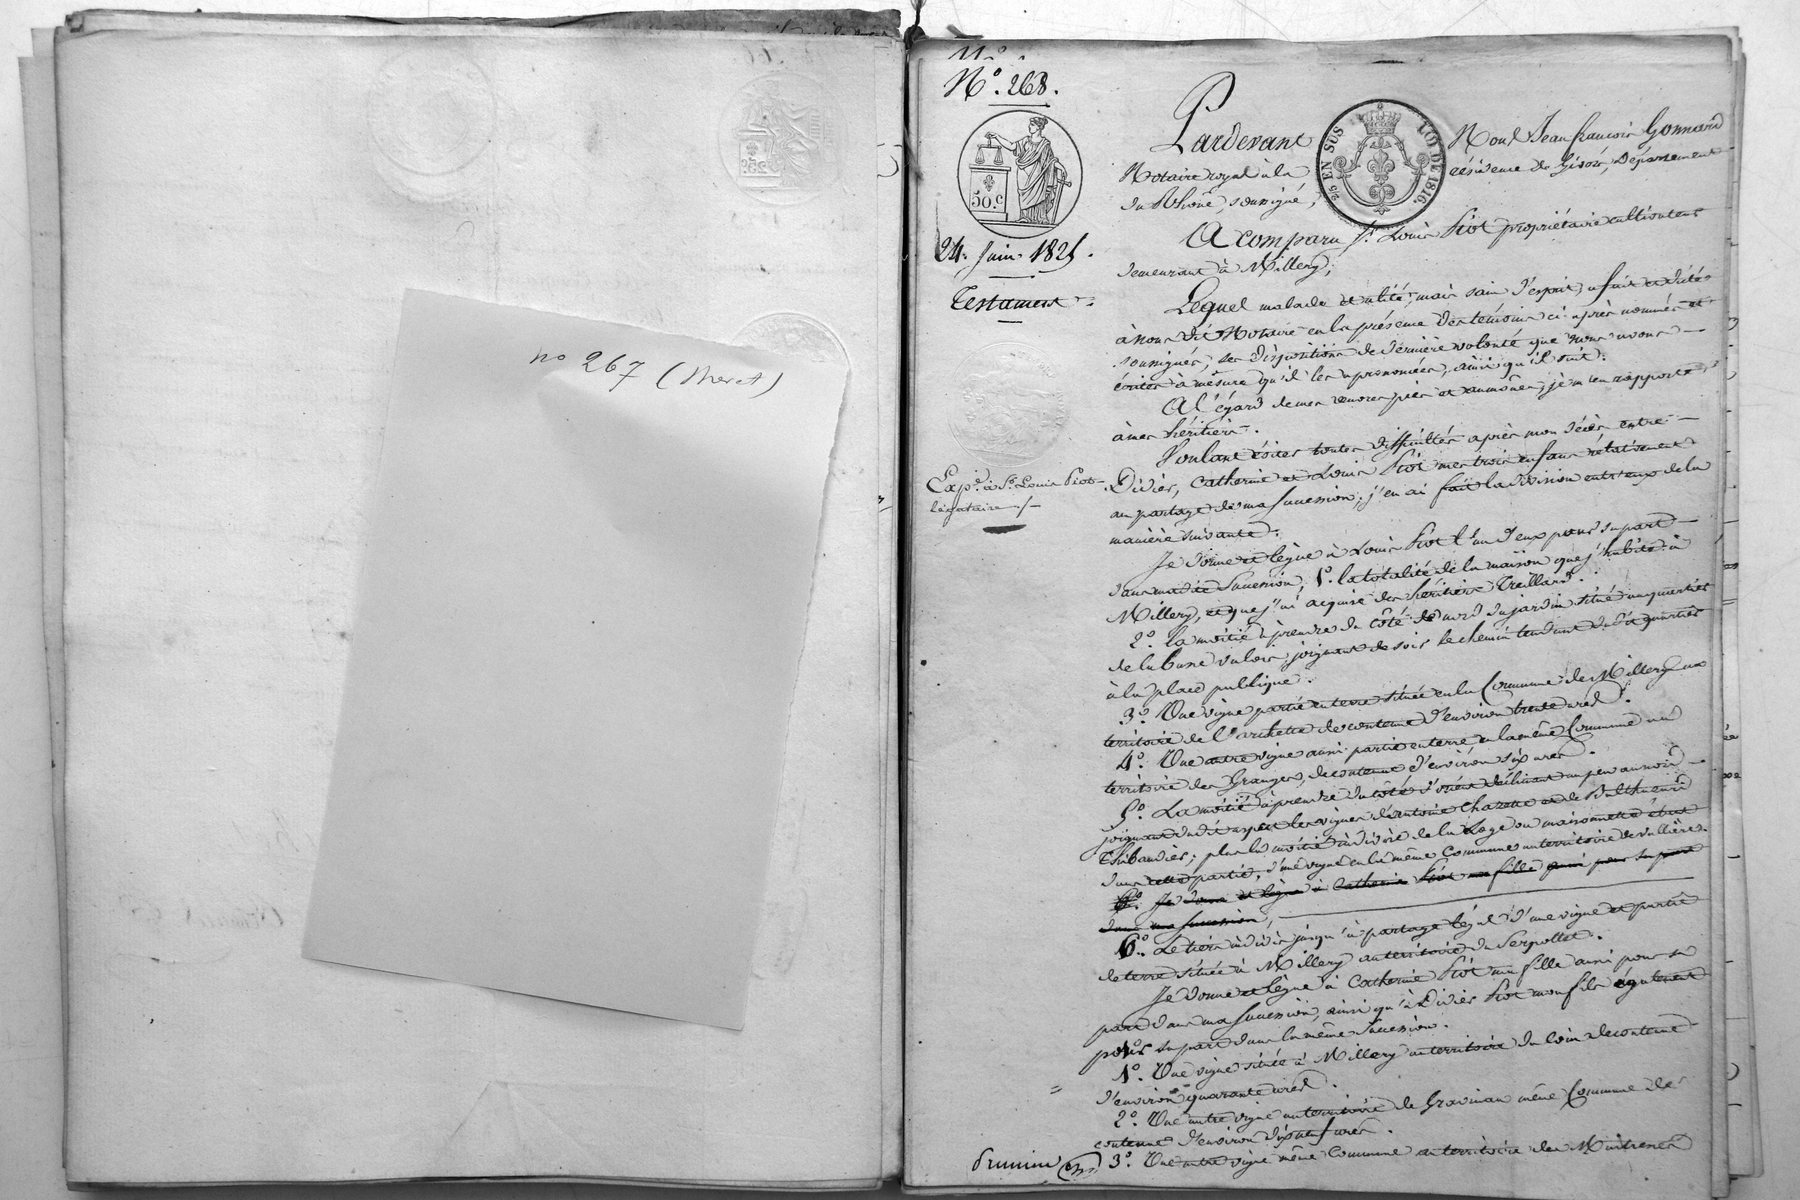 no 267 (
N.° 268.
50.c
24. Juin. 1825.
Testament.
Exp.on à Sr. Louis Piot
légataire ./-
Pardevant
2/5 EN SUS LOI DE 1816.
Nous Jean françois Gonnard
Notaire royal à la résidence de Givors, Département
du Rhône, soussigné,
A comparu Sr. Louis Piot propriétaire cultivateur
demeurant à Millery;
Lequel malade et alité, mais sain d'esprit, a fait et dicté
à nous dit Notaire en la présence des témoins ci-après nommés et
soussignés, ses dispositions de dernière volonté que nous avons
écrites à mesure qu'il les a prononcées, ainsi qu'il suit:
A l'égard de mes œuvres pies et aumônes, je m'en rapporte
à mes héritiers.
Voulant éviter toutes difficultés après mon décès entre
Didier, Catherine et Louis Piot mes trois enfans relativement
au partage de ma succession, j'en ai fait la division entr'eux de la
manière suivante.
Je donne et lègue à Louis Piot l'un d'eux pour sa part
dans madite succession, 1.° la totalité de la maison que j'habite à
Millery, et que j'ai acquise des héritiers Treillard.
2.° La moitié à prendre du côté de nord du jardin situé au quartier
de la joignant de soir le chemin tendant dudit quartier
à la place publique.
3.° Une vigne partie en terre située en la Commune de Millery au
territoire de l'archette de contenue d'environ trente ares.
4.° Une autre vigne aussi partie en terre en la même Commune au
territoire des Granges, de contenue d'environ six ares.
5.° La moitié à prendre du côté d'orient déclinant un peu au nord
joignant dudit aspect les vignes d'antoine Chazotte et de Balthazard
Thibaudier; plus la moitié indivise de la Loge ou maisonnette étant
dans cette partie, d'une vigne en la même Commune au territoire de vallière.
6.° Je donne et lègue à Catherine Piot ma fille aussi pour sa part
dans ma succession,
6.° Le tiers indivis jusqu'à partage légal d'une vigne et partie
de terre située à Millery au territoire du Serpollet.
Je donne et lègue à Catherine Piot ma fille aussi pour sa
part dans ma succession, ainsi qu'à Didier Piot mon fils également
pour sa part dans la même succession.
1.° Une vigne située à Millery au territoire du loin de contenue
d'environ quarante ares.
2.° Une autre vigne au territoire de Gravinan même Commune de
contenue d'environ dixneuf ares.
3.° Une autre vigne même Commune au territoire des